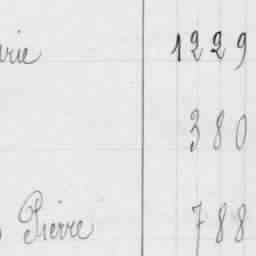 1229
380
Pierre 788